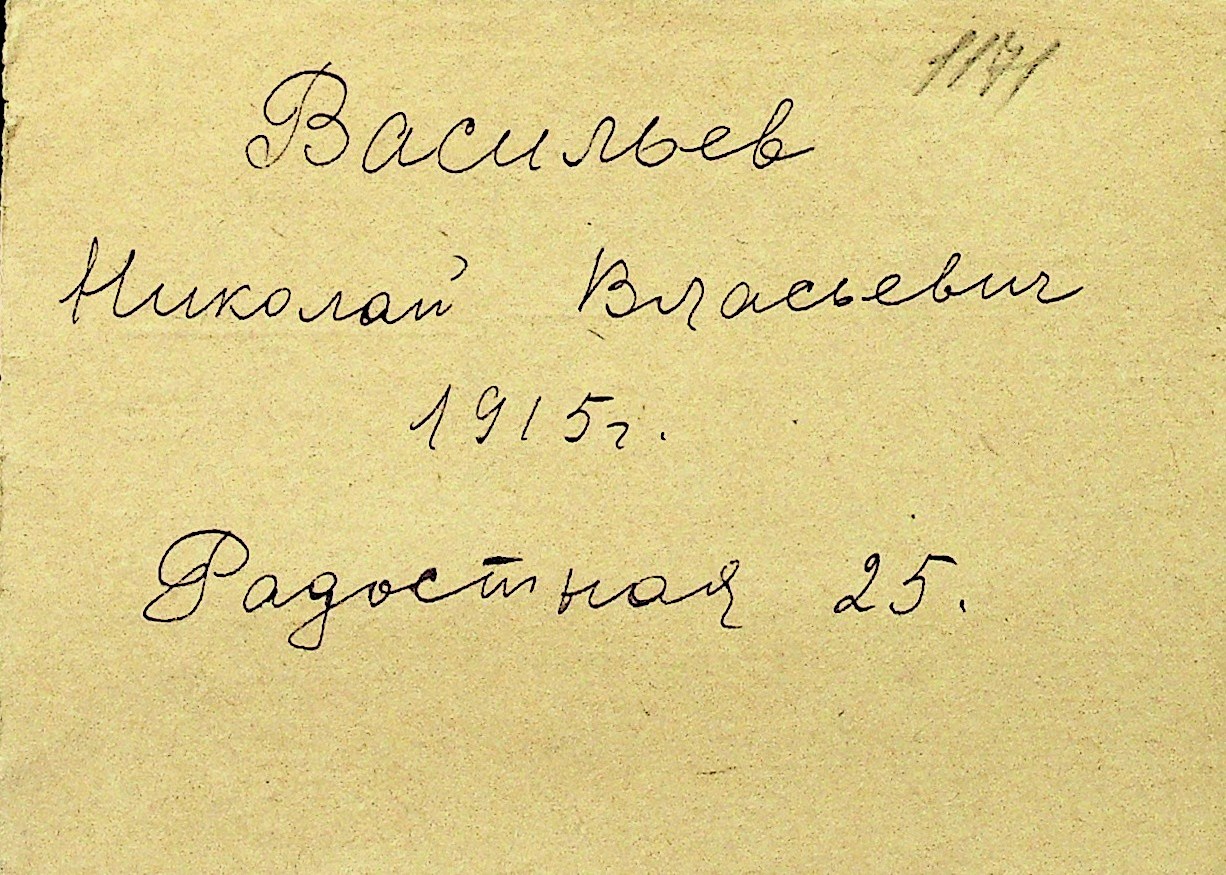 1171
Васильев
Николай Власьевич
1915г.
Радостная 25.